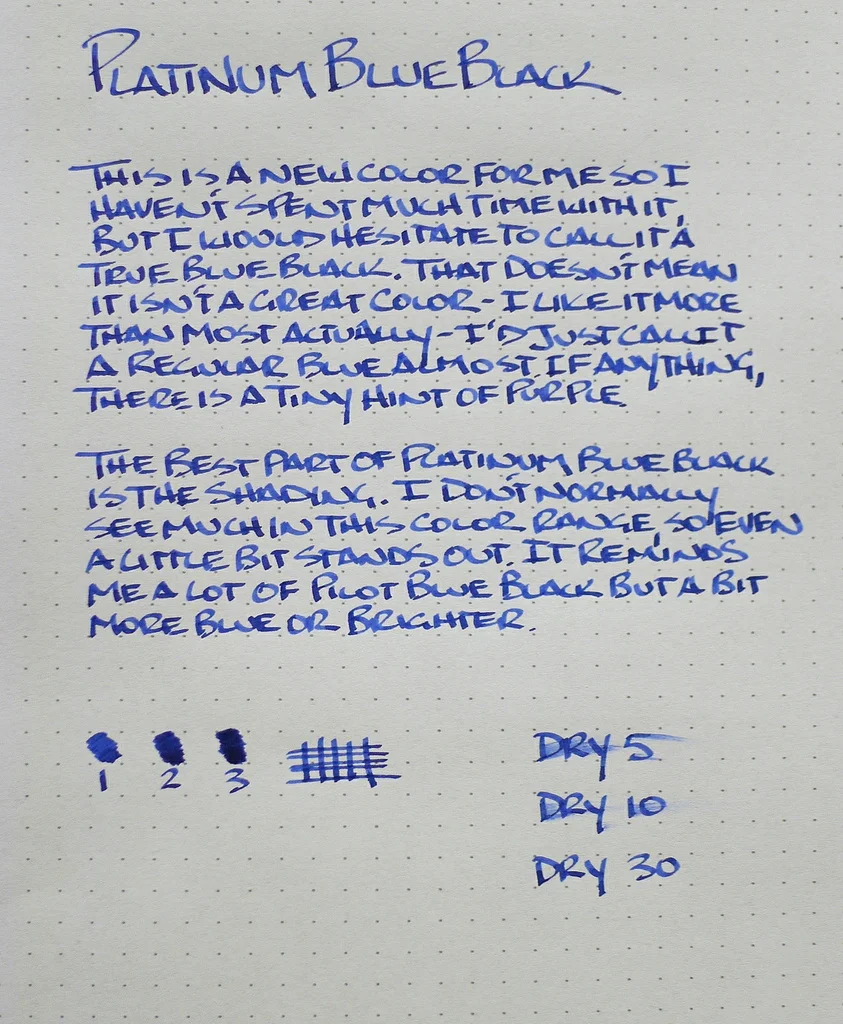 PLATINUM BLUE BLACK
THIS IS A NEW COLOR FOR ME SO I
HAVEN'T SPENT MUCH TIME WITH IT,
BUT I WOULD HESITATE TO CALL IT A
TRUE BLUE BLACK. THAT DOESN'T MEAN
IT ISN'T A GREAT COLOR - I LIKE IT MORE
THAN MOST ACTUALLY - I'D JUST CALL IT
A REGULAR BLUE ALMOST. IF ANYTHING,
THERE IS A TINY HINT OF PURPLE.
THE BEST PART OF PLATINUM BLUE BLACK
IS THE SHADING. I DON'T NORMALLY
SEE MUCH IN THIS COLOR RANGE, SO EVEN
A LITTLE BIT STANDS OUT. IT REMINDS
ME A LOT OF PILOT BLUE BLACK BUT A BIT
MORE BLUE OR BRIGHTER.
1 2 3
DRY 5
DRY 10
DRY 30